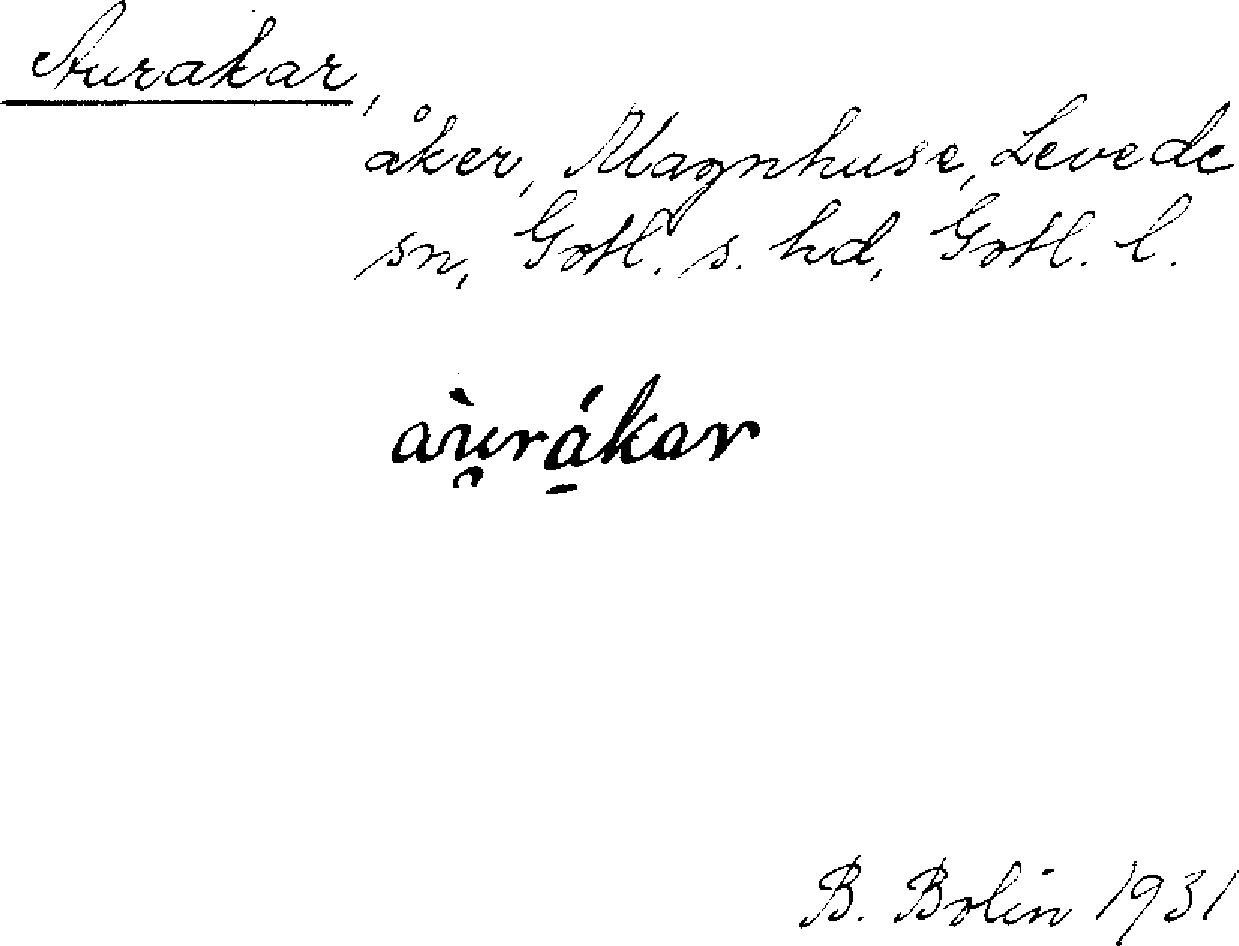 Aurakar,
åker, Magnhuse, Levede
sn, Gotl. s. hd, Gotl. l.
aù̯rá̱kar
B. Bolin 1931